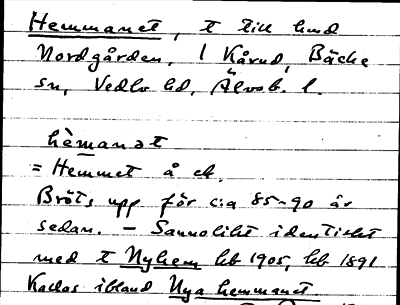 Hemmanet, t till hmd
Nordgården, 1 Kårud, Bäcke
sn, Vedbo hd, Älvsb. l.
hèmanət
= Hemmet å ek.
Bröts upp för c:a 85-90 år
sedan. - Sannolikt identiskt
med t Nyhem hb 1905, hb 1891
Kallas ibland Nya hemmanet